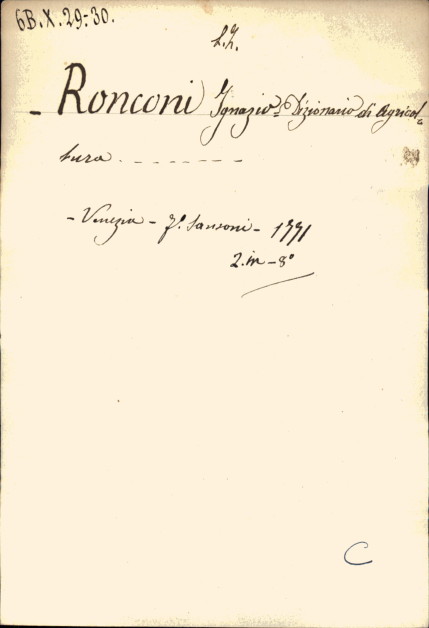 6B.X.29-30.
L.Z.
- Ronconi Ignazio = Dizionario di Agricol=
tura . - - - - - - -
- Venezia - Fº. Sansoni - 1771
2. in - 8°
C